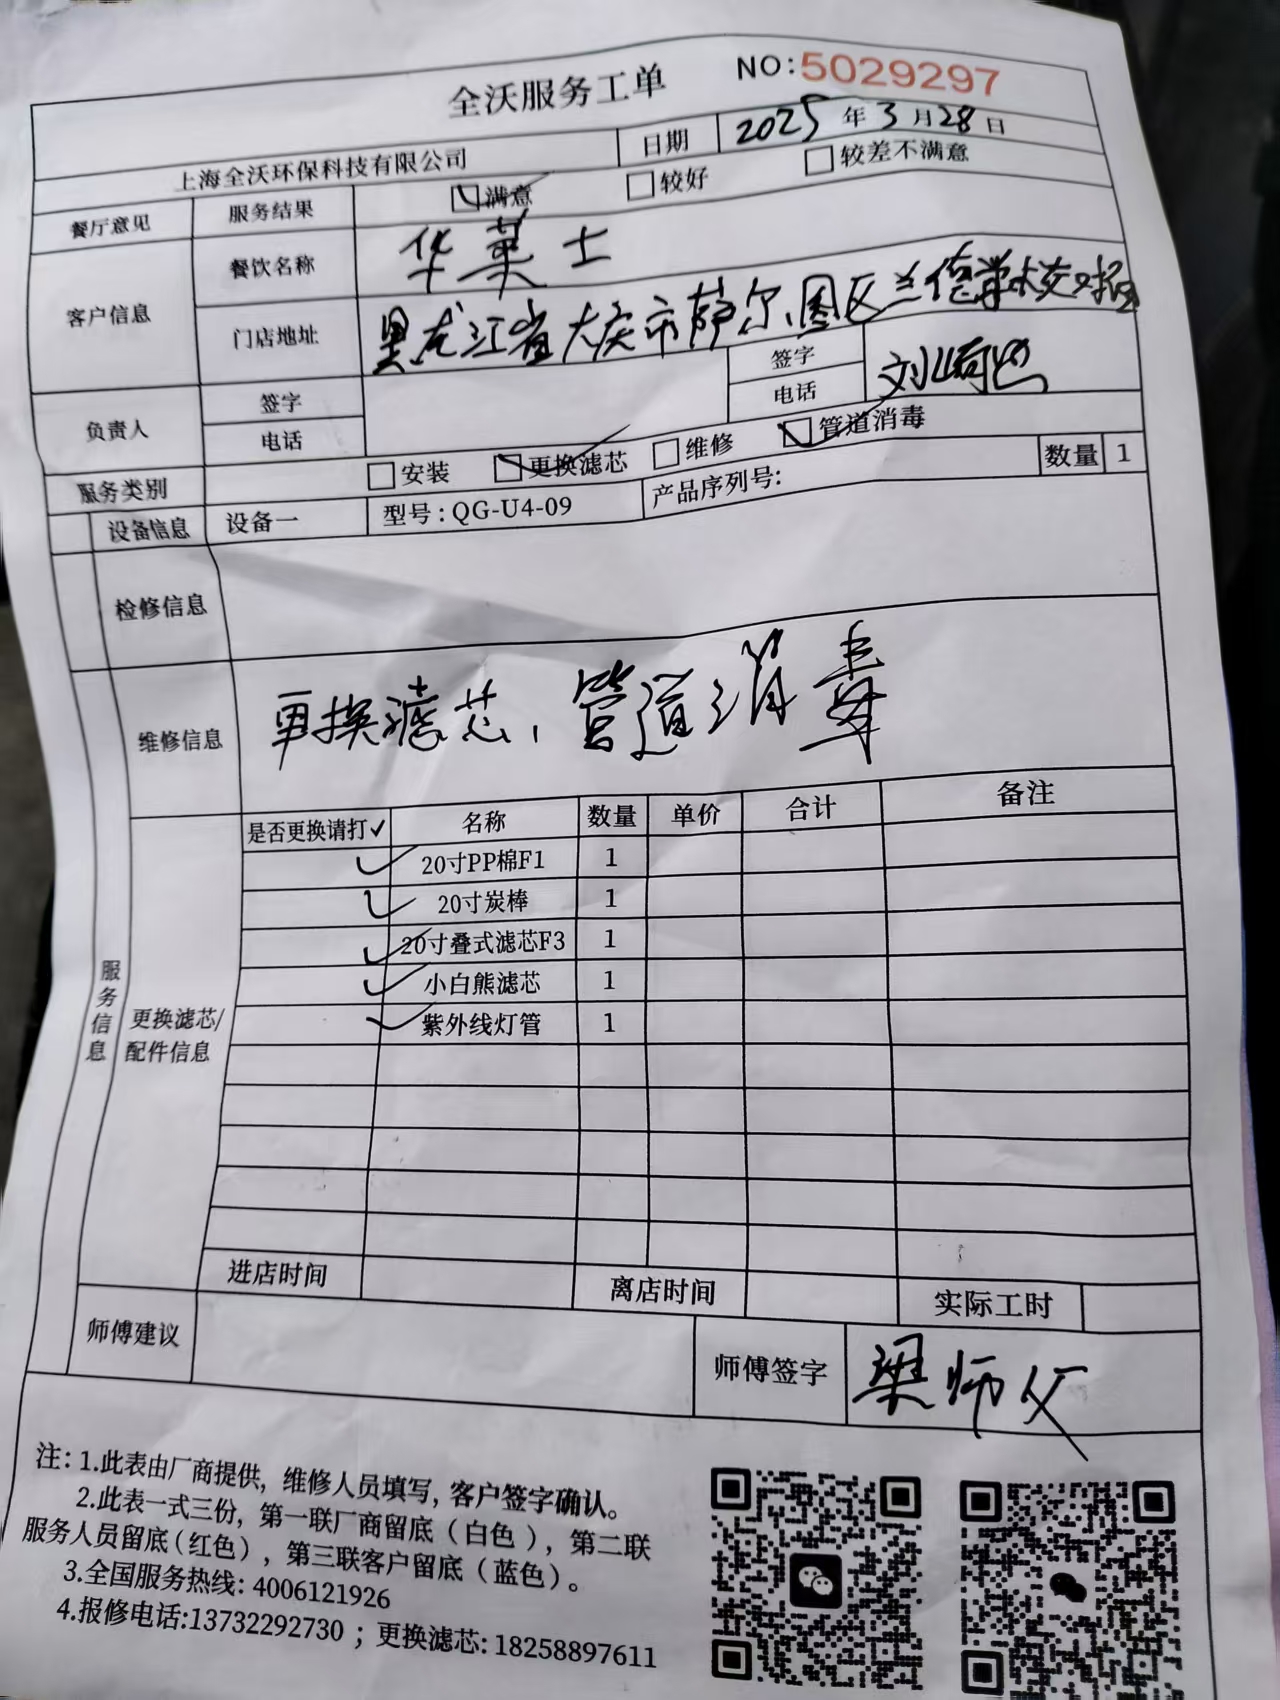 全沃服务工单 NO:5029297
上海全沃环保科技有限公司 日期 2025年3月28日
餐厅意见 服务结果 满意 较好 较差不满意
客户信息 餐饮名称 华莱士
门店地址 黑龙江省大庆市萨尔图区兰德学术交
负责人 签字 签字 刘
电话 电话
服务类别 安装 更换滤芯 维修 管道消毒
设备信息 设备一 型号:QG-U4-09 产品序列号: 数量 1
检修信息
维修信息 更换滤芯、管道消毒
服务信息
更换滤芯/配件信息
是否更换请打✓ 名称 数量 单价 合计 备注
✓ 20寸PP棉F1 1
✓ 20寸炭棒 1
✓ 20寸叠式滤芯F3 1
✓ 小白熊滤芯 1
✓ 紫外线灯管 1
进店时间 离店时间 实际工时
师傅建议 师傅签字 梁师父
注:1.此表由厂商提供,维修人员填写,客户签字确认。
2.此表一式三份,第一联厂商留底(白色),第二联
服务人员留底(红色),第三联客户留底(蓝色)。
3.全国服务热线:4006121926
4.报修电话:13732292730;更换滤芯:18258897611